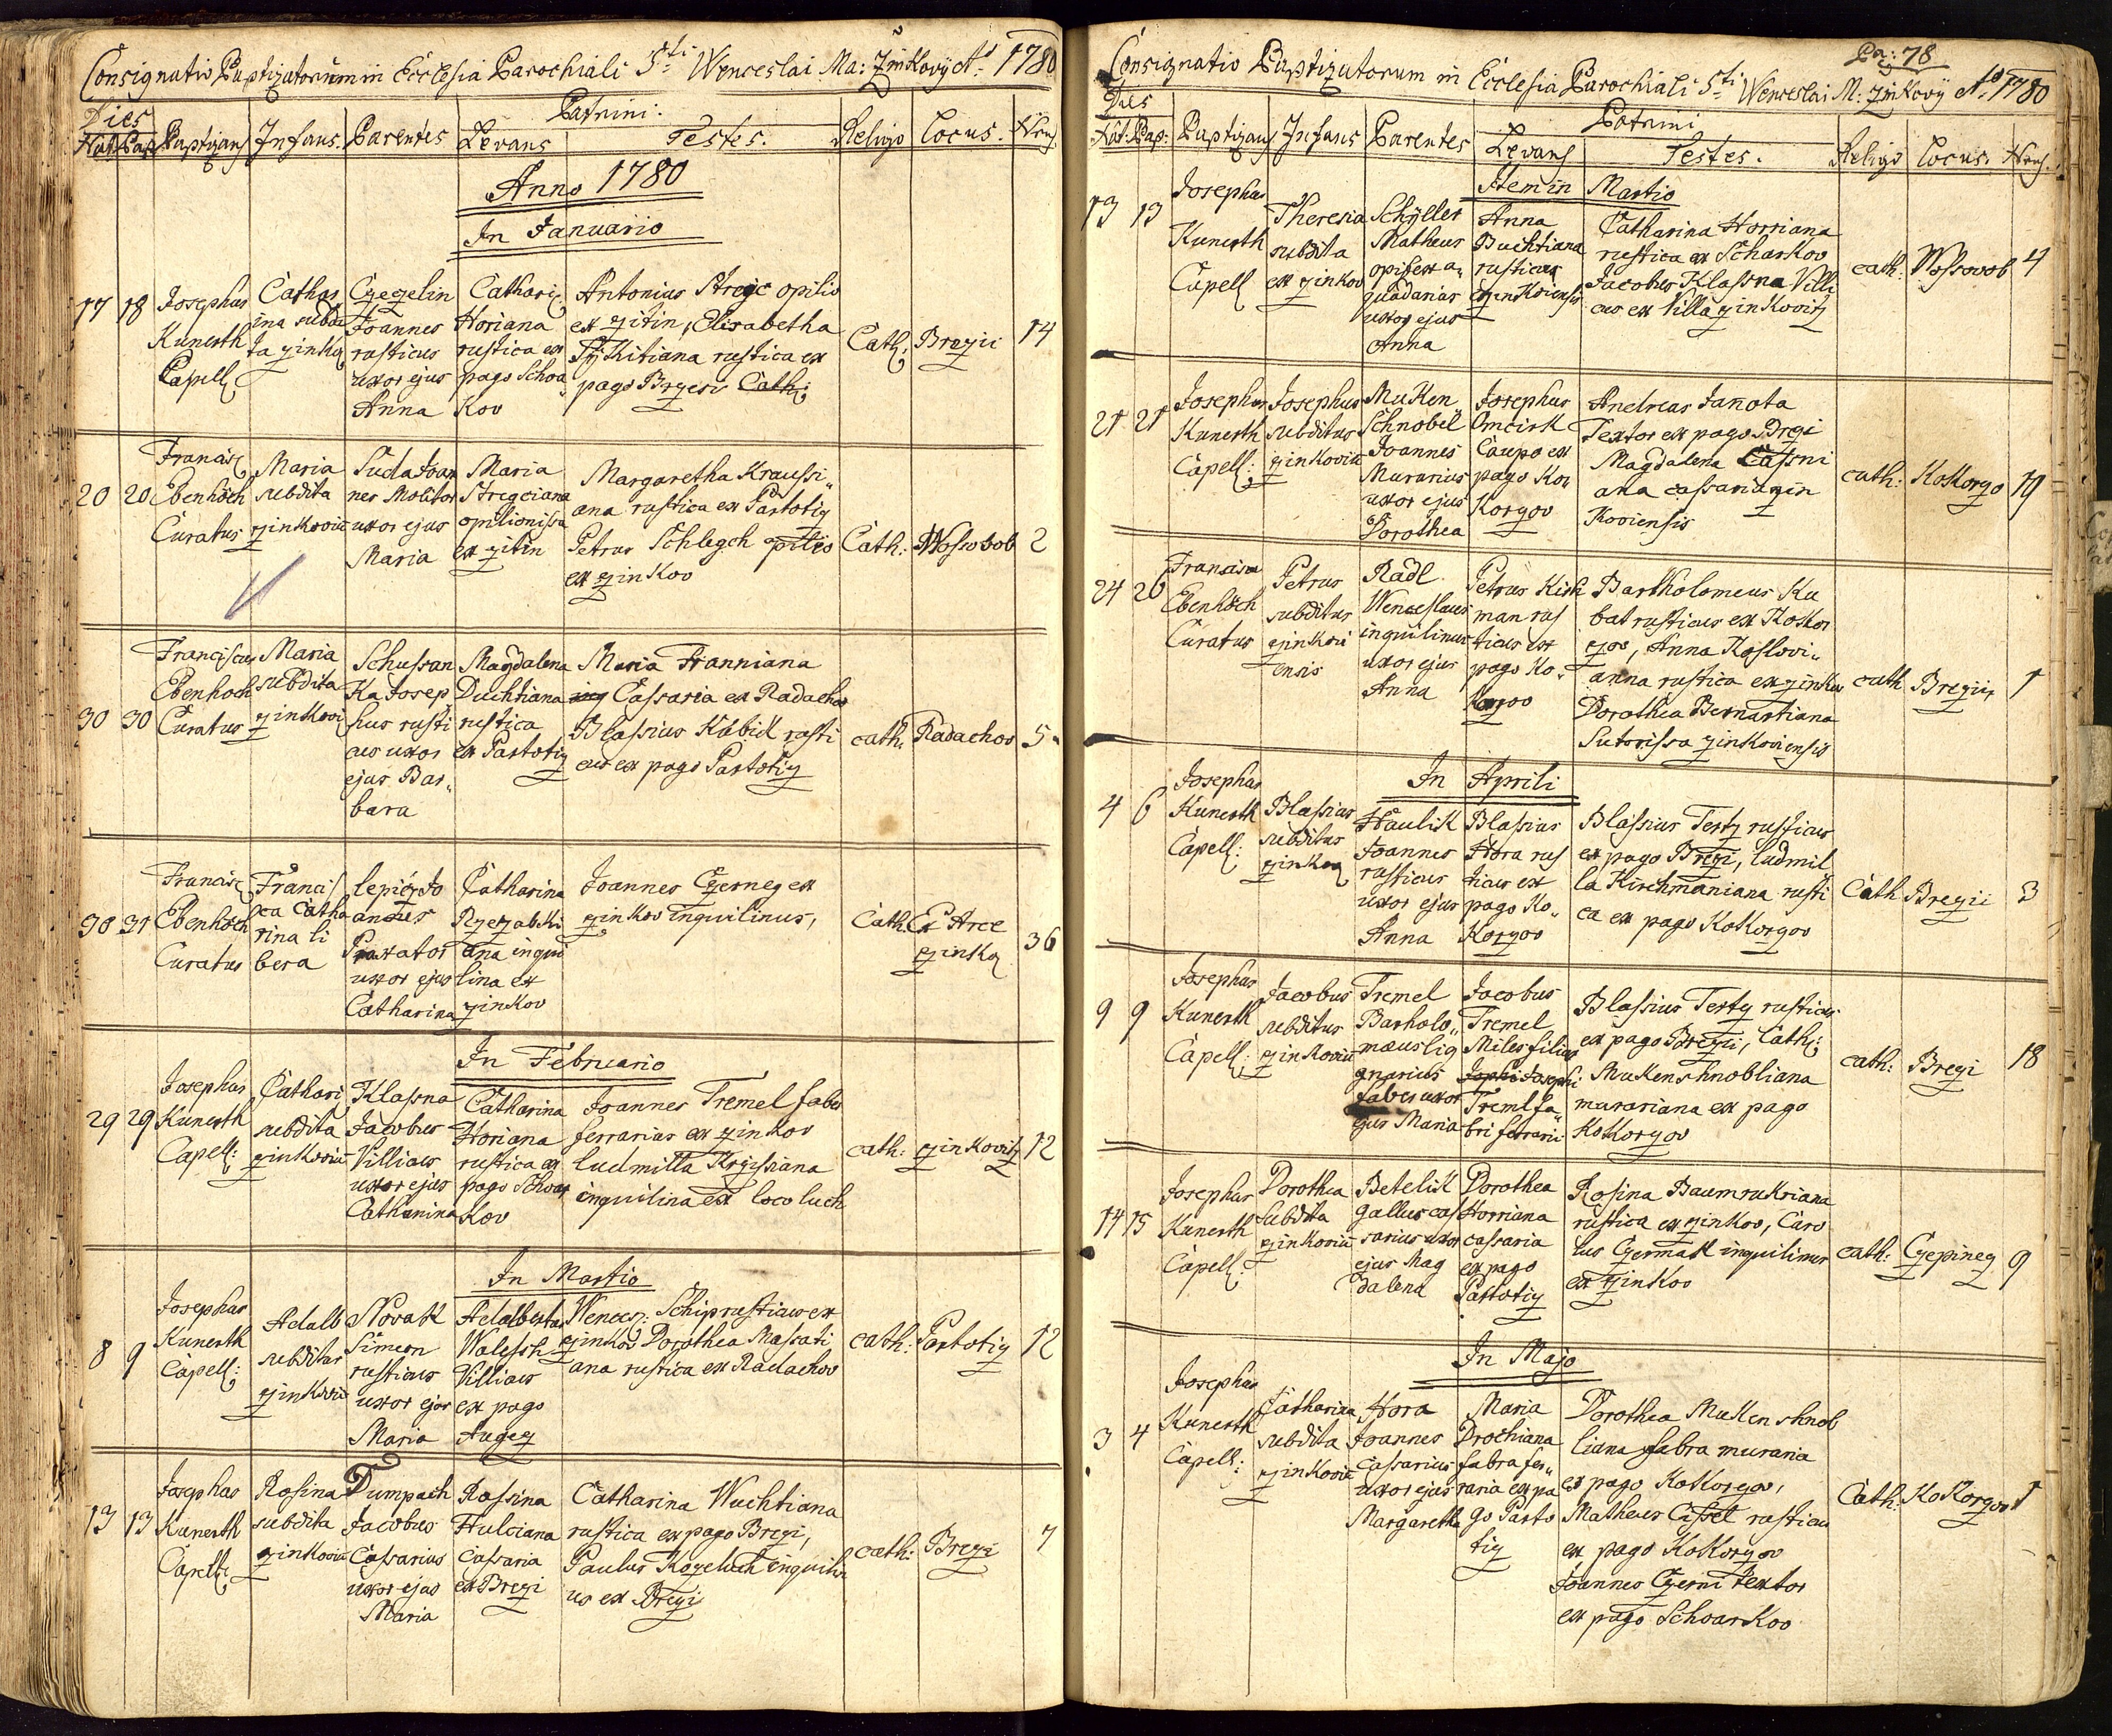 Consignatio Baptizatorum in Ecclesia Parochiali Sti Wenceslai Ma: Zinkovy Ao 1780
Dies
Patrini:
Nat: Bap: Baptizans Infans. Parentes Levans Testes. Religio Locus. Nrus
Anno 1780
In Januario
17 18
Josephus
Kunerth
Capell
Cathar
ina subdi
ta zinko
Czezelin
Joannes
rusticus
uxor ejus
Anna
Cathari
Horiana
rustica ex
pago Schoa
Kov
Antonius Stregc opilio
ex zitin, Elisabetha
rustica ex
pago Cath:
Cath: Brezii 14
20 20
Francisc
Ebenhöch
Curatus
Maria
subdita
zinkovii
Suda Joan
nes Molitor
uxor ejus
Maria
Maria
Stregciana
opilionissa
ex zitin
Margaretha Kraussi
ana rustica ex Partotiz
Petrus Schlegch opilio
ex zinkov
Cath: Wossovob 2
30 30
Franciscus
Ebenhoch
Curatus
Maria
subdita
zinkovi
Schussan
Ka Josep
hus rusti
cus uxor
ejus Bar
bara
Magdalena
Duchtiana
rustica
ex Partotiz
Maria Franniana
Cassaria ex Radachov
Blassius Kubik rusti
cus ex pago Partotiz
cath: Radachov 5
30 31
Francisc
Ebenhöch
Curatus
Francis
ca Catha
rina li
bera
Lepicz Jo
annes
Praxator
uxor ejus
Catharina
Catharina
Rzezabki
ana inqui
lina ex
zinkov
Joannes Czerneg ex
zinkov inquilinus,
Cath: Ex Arce
zinko 36
In Februario
29 29
Josephus
Kunerth
Capell:
Cathari
subdita
zinkovii
Klassna
Jacobus
Villicus
uxor ejus
Catharina
Catharina
Horiana
rustica ex
pago Schoar
Kov
Joannes Tremel faber
ferrarius ex zinkov
Ludmilla Krzissiana
inquilina ex loco luch
cath: zinkovitz 12
In Martio
8 9
Josephus
Kunerth
Capell:
Adalb
subditus
zinkovii
Novak
Simeon
rusticus
uxor ejus
Maria
Adalbertus
Walesch
Villicus
ex pago
Augez
Wencesz: Schip rusticus ex
zinkov Dorothea Massati
ana rustica ex Radachov
cath: Partotiz 12
13 13
Josephus
Kunerth
Capell:
Rosina
subdita
zinkovii
Dumpach
Jacobus
Cassarius
uxor ejus
Maria
Rossina
Hulciana
cassaria
ex Brezi
Catharina Wuchtiana
rustica ex pago Brezi,
Paulus Kozeluch inquilin
us ex Brezi
cath: Brezi 7
Pag: 78
Consignatio Baptizatorum in Ecclesia Parochiali Sti Wenceslai M: Zinkovy Ao 1780
Dies
Patrini
Nat: Bap: Baptizans Infans Parentes Levans Testes. Religio Locus. Nrus.
Item in Martio
13 13
Josephus
Kunerth
Capell
Theresia
subdita
ex zinkov
Schyller
Matheus
opifex a
quadanas
uxor ejus
Anna
Anna
Buchtiana
rustica
zinkoviensis
Catharina Horriana
rustica ex Scharkov
Jacobus Klassna Villi
cus ex Villa zinkovitz
cath: Wossovob 4
21 21
Josephus
Kunerth
Capell:
Josephus
subditus
zinkovii
Muken
Schnobel
Joannes
Murarius
uxor ejus
Dorothea
Josephus
Omcirk
Caupo ex
pago Ko
Korzov
Andreas Janota
Textor ex pago Brezi
Magdalena Cassni
ana cassaria zin
Koviensis
cath: Kokorzo 19
24 26
Franciscus
Ebenhöch
Curatus
Petrus
subditus
zinkovi
ensis
Radl
Wenceslaus
inquilinus
uxor ejus
Anna
Petrus Kirh
man rus
ticus ex
pago Ko
Korzov
Bartholomeus Ku
bat rusticus ex Kokor
zov, Anna Koslovi
anna rustica ex zinkov
Dorothea Bernartiana
Sutorissa zinkoviensis
cath Brezii 1
In Aprili
4 6
Josephus
Kunerth
Capell:
Blassius
subditus
zinkov
Haulik
Joannes
rusticus
uxor ejus
Anna
Blasius
Hora rus
ticus ex
pago Ko
Korzov
Blassius Terty rusticus
ex pago Brezi, Ludmil
la Kirchmaniana rusti
ca ex pago Kokorzov
Cath Brezii 3
9 9
Josephus
Kunerth
Capell:
Jacobus
subditus
zinkovii
Tremel
Bartholo
mæus lig
gnarius
faber uxor
ejus Maria
Jacobus
Tremel
Miles filius
Josephi
Treml fa
bri ferrarii
Blassius Terty rusticus
ex pago Brezii, Cath:
Mukenschnobliana
murariana ex pago
Kokorzov
cath: Brezi 18
14 15
Josephus
Kunerth
Capell:
Dorothea
subdita
zinkovii
Betelik
Gallus cas
sarius uxor
ejus Mag
dalena
Dorothea
Horriana
cassaria
ex pago
Partotiz
Rosina Baumrukriana
rustica ex zinkov, Caro
lus Czermak inquilinus
ex zinkov
cath: Czepinez 9
In Majo
3 4
Josephus
Kunerth
Capell:
Catharina
subdita
zinkovii
Hora
Joannes
Cassarius
uxor ejus
Margaretha
Maria
Drochiana
fabra fer
raria ex pa
go Parto
tiz
Dorothea Mukenshnob
liana fabra muraria
ex pago Kokorzov,
Matheus Cissel rusticus
ex pago Kokorzov
Joannes Czerni textor
ex pago Schoarkov
Cath: Kokorzov 1